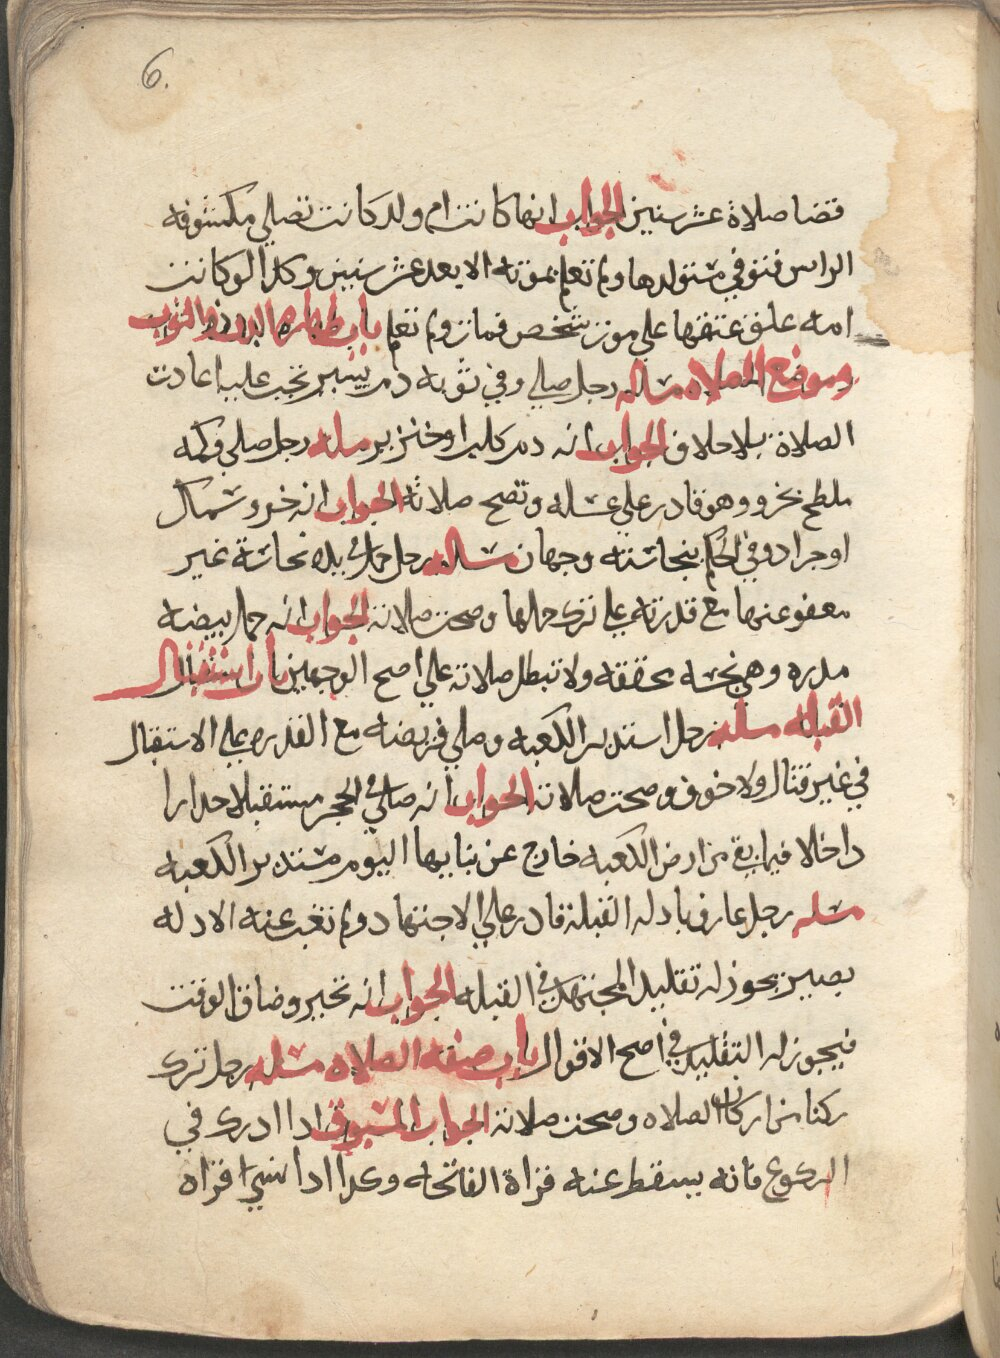 6.
قضا صلاة عشر سنين الجواب انها كانت ام ولد كانت تصلي مكشوفه
الراس فتوفي مستولدها ولم تعلم بموته الا بعد عشر سنين وكدا لو كانت
امه علق عتقها علي موت شخص فمات ولم تعلم باب طهاره البدن والثوب
وموضع الصلاه مساله رجل صلي وفي ثوبه دم يسير تجب عليه اعادت
الصلاة بلا خلاف الجواب انه دم كلب او خنزير مسله رجل صلي وكمه
ملطخ بخرو وهو قادر علي غسله وتصح صلاته الجواب انه خرو سمك
او جراد وفي الحكم بنجاسته وجهان مساله رجل حمل في يده نجاسة غير
معفو عنها مع قدرته علي ترك حملها وصحت صلاته الجواب انه حمل بيضه
مدره وهي نجسه محققه ولا تبطل صلاته علي اصح الوجهين باب استقبال
القبله مسله رجل استدبر الكعبه وصلي فريضه مع القدره علي الاستقبال
في غير قتال ولا خوف وصحت صلاته الجواب انه صلي في الحجر مستقبلا جدارا
داخلا فيما بقي من ارض الكعبه خارج عن بنايها اليوم مستدبر الكعبه
مسله رجل عارف بادله القبلة قادر علي الاجتهاد ولم تغب عنه الادله
بصير يجوز له تقليد المجتهد في القبله الجواب انه تحير وضاق الوقت
فيجوز له التقليد في اصح الاقوال باب صفه الصلاه مسله رجل ترك
ركنا من اركان الصلاه وصحت صلاته الجواب المسبوق ادا ادرك في
الركوع فانه يسقط عنه قراة الفاتحه وكدا ادا نسي قراه